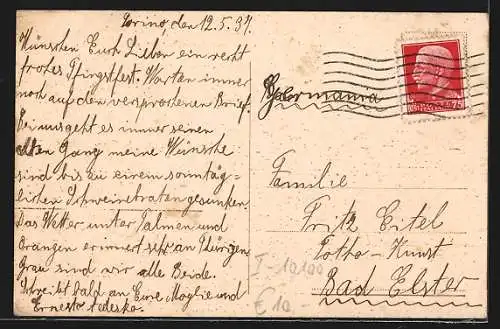 Torino, den 12.5.37.
Wünschen Euch Lieben ein recht
frohes Pfingstfest. Warten immer
noch auf den versprochenen Brief.
Bei uns geht es immer seinen
alten Gang meine Wünsche
sind bis zu einem sonntäg-
lichen Schweinebraten gesunken.
Das Wetter unter Palmen und
Orangen erinnert sehr an Thüringen
Grau sind wir alle Beide.
Schreibt bald an Eure Moglie und
Ernesto Tedesko.
Germania
Familie
Fritz Eitel
Foto-Kunst
Bad Elster
I-10100
€10
75